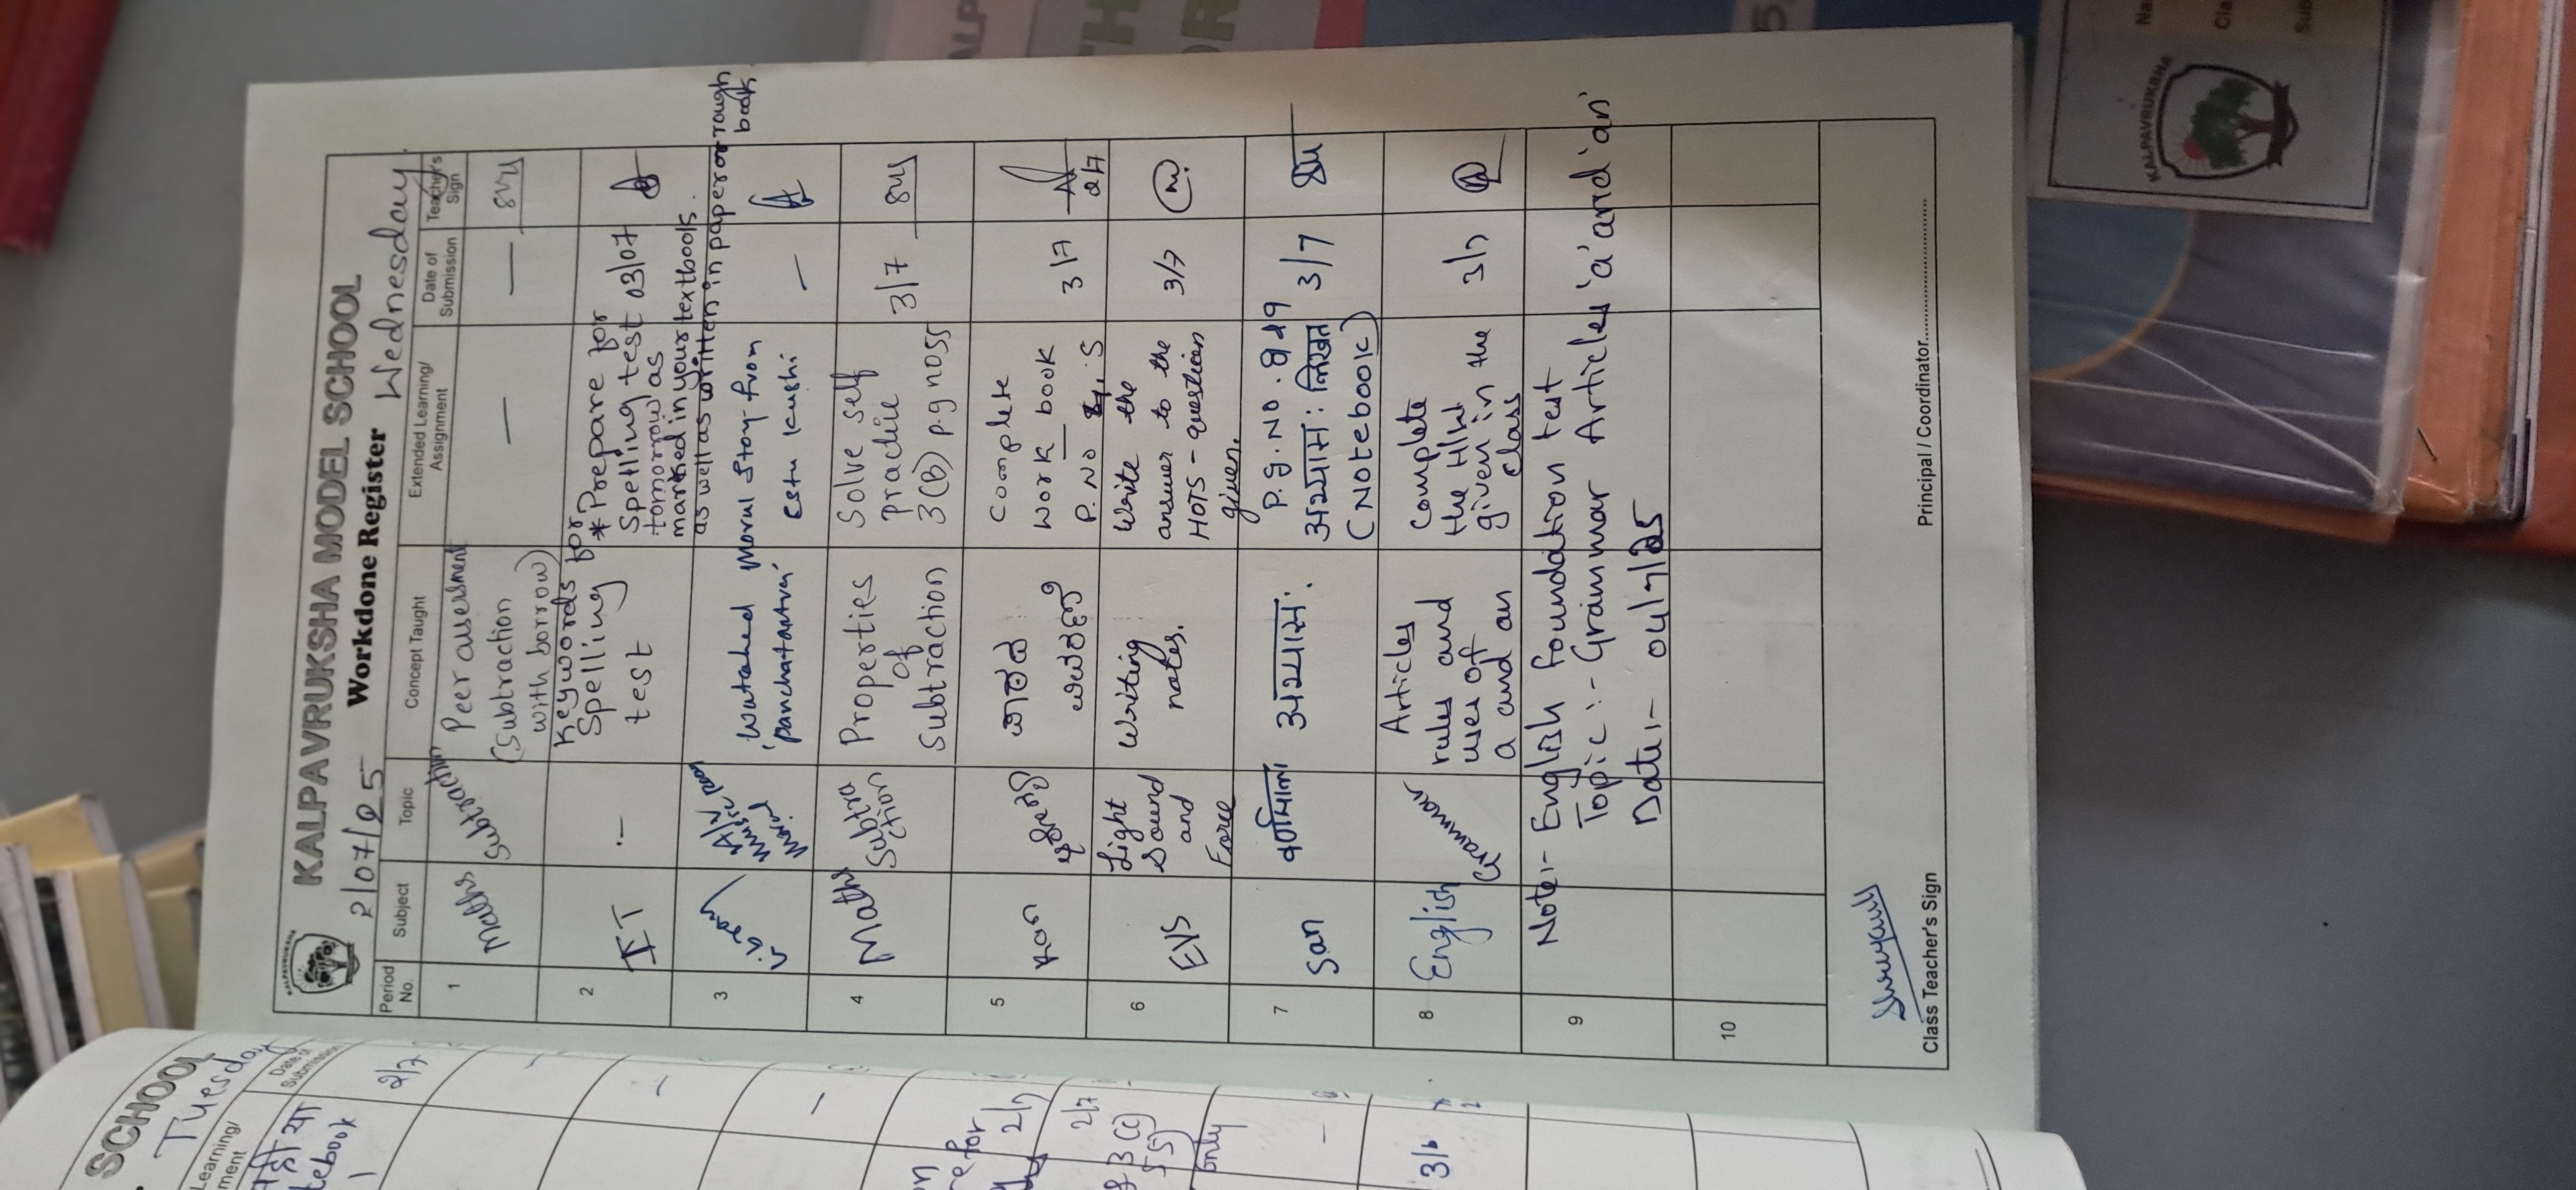 KALPAVRUKSHA MODEL SCHOOL
2/07/25 Workdone Register Wednesday.
Period No. Subject Topic Concept Taught Extended Learning/ Assignment Date of Submission Teacher's Sign
1 Maths Subtraction Peer assessment (Subtraction with borrow) — —
2 IT :- Keywords for Spelling test * Prepare for Spelling test tomorrow as marked in your textbooks as well as written in paper or rough book. 03/07
3 Watched 'panchatantra' Moral Story from —
4 Maths Subtraction Properties of Subtraction Solve self practice 3(B) p.g no 55 3/7
5 ಕನ್ನಡ Complete work book P. No 3/7 2/7
6 EVS Light Sound and Force Writing notes. Write the answer to the HOTS - questions given. 3/7
7 San वर्णमाला अभ्यासः. P.g. No. 8d9 अभ्यासः लिखत (Notebook) 3/7
8 English Grammar Articles rules and uses of a and an Complete the H/W given in the class 3/7
9 Note:- English foundation test
Topic :- Grammar Articles 'a' and 'an'
Date:- 04/7/25
10
Class Teacher's Sign Principal / Coordinator
SCHOOL
Tuesday
Learning/
Date of Submission
2/7
2/7
2/7
only
KALPAVRUKSHA